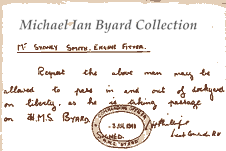 Michael Ian Byard Collection
Mr SYDNEY SMITH. ENGINE FITTER.
Request the above man may be
allowed to pass in and out of dockyard
on liberty, as he is taking passage
on H.M.S. BYARD.
COMMANDING OFFICER
H.M.S. BYARD